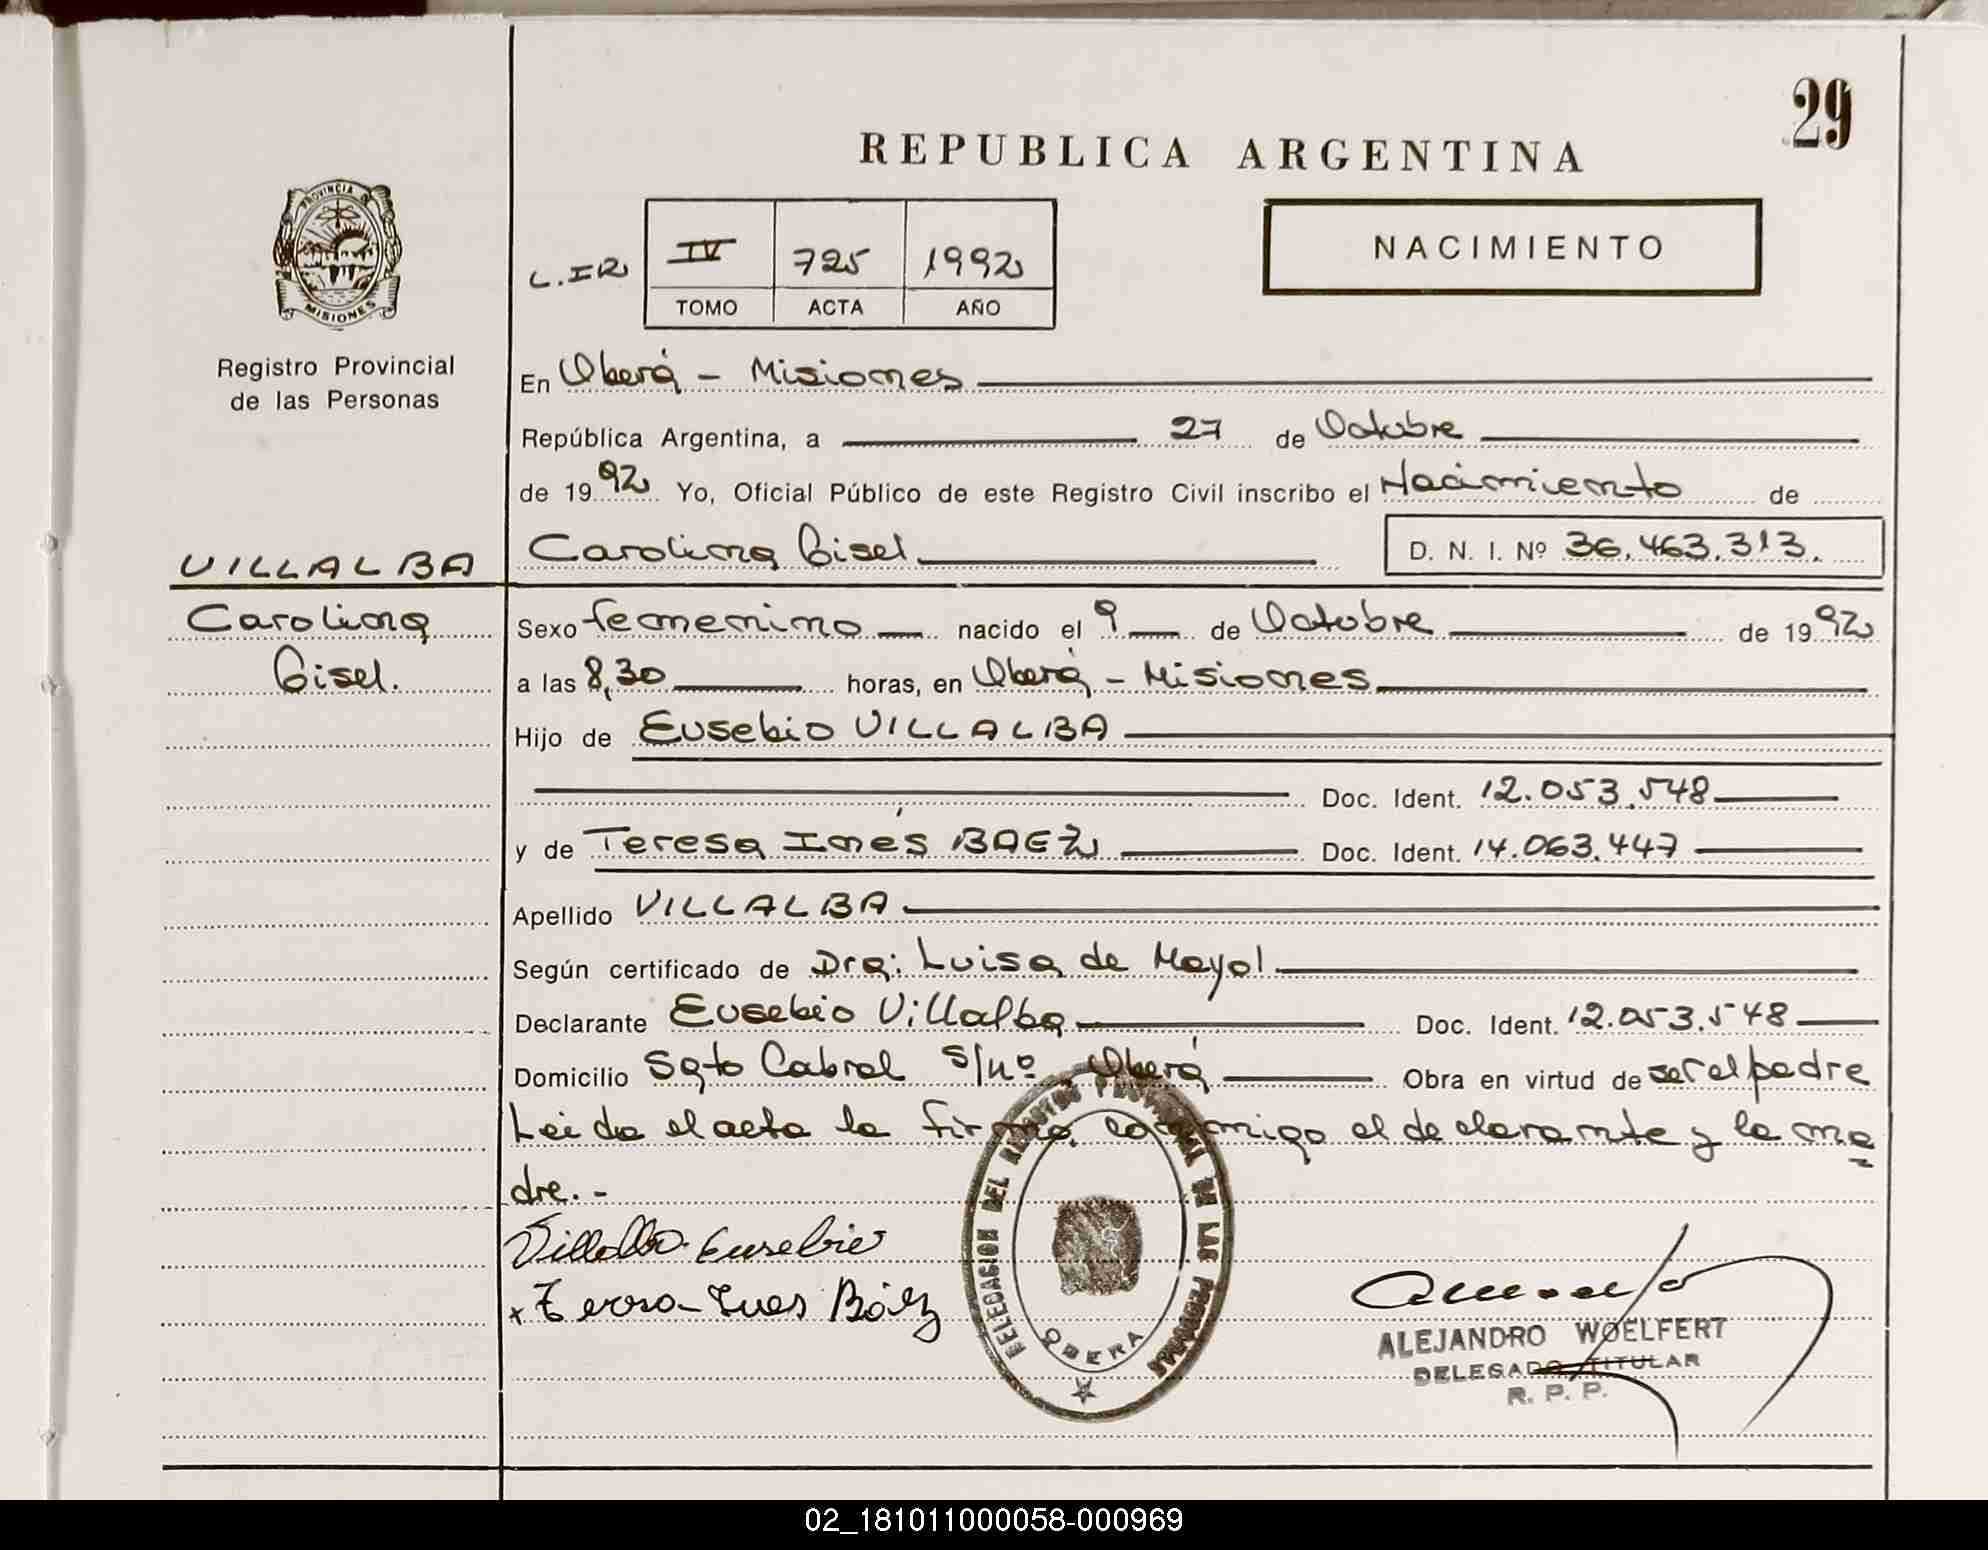 29
REPUBLICA ARGENTINA
PROVINCIA DE
MISIONES
Registro Provincial
de las Personas
L.IR
IV 725 1992
TOMO ACTA AÑO
NACIMIENTO
En Oberá - Misiones
República Argentina, a 27 de Octubre
de 1992 Yo, Oficial Público de este Registro Civil inscribo el Nacimiento de
VILLALBA
Carolina Gisel
D. N. I. Nº 36.463.313.
Carolina
Gisel.
Sexo femenino nacido el 9 de Octubre de 1992
a las 8,30 horas, en Oberá - Misiones
Hijo de Eusebio VILLALBA
Doc. Ident. 12.053.548
y de Teresa Inés BAEZ Doc. Ident. 14.063.447
Apellido VILLALBA
Según certificado de Dra: Luisa de Mayol
Declarante Eusebio Villalba Doc. Ident. 12.053.548
Domicilio Sgto Cabral S/nº Oberá Obra en virtud de ser el padre
Leida el acta la firma conmigo el declarante y la ma
dre.-
Villalba Eusebio
x Teresa Ines Báez
DELEGACION DEL REGISTRO PROVINCIAL DE LAS PERSONAS
OBERA
ALEJANDRO WOELFERT
DELEGADO TITULAR
R. P. P.
02_181011000058-000969